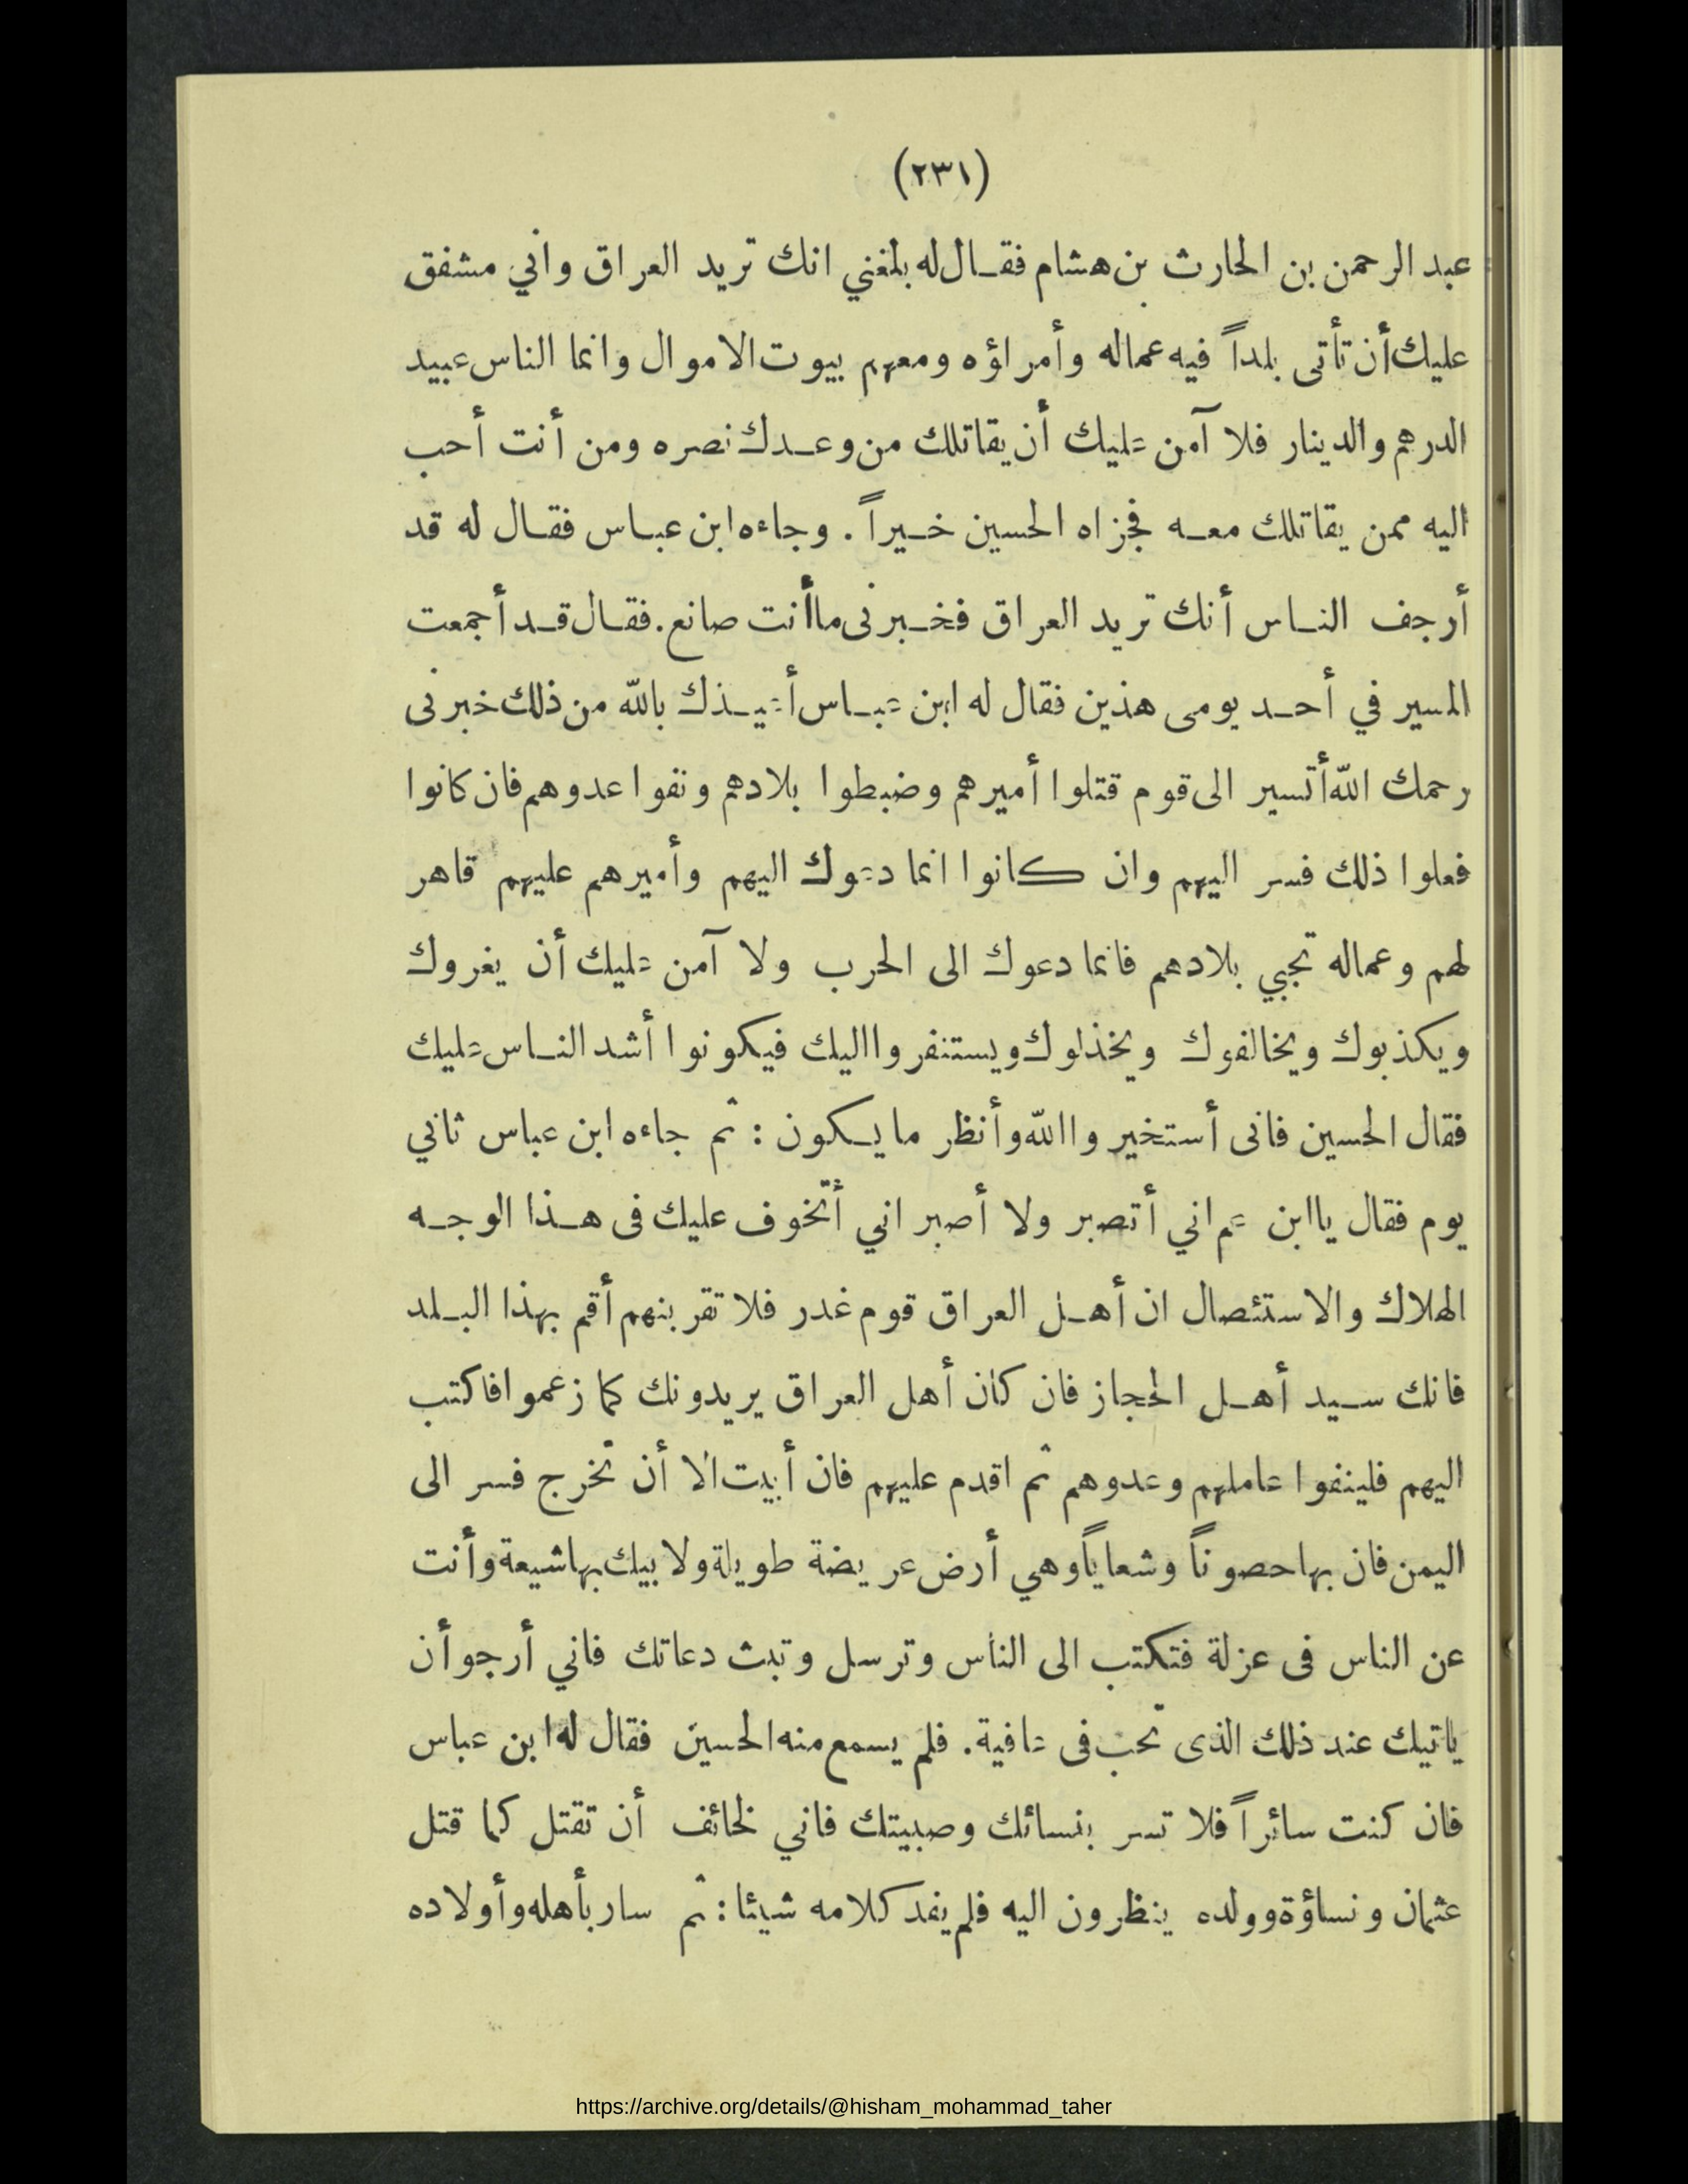 (٢٣١)
عبد الرحمن بن الحارث بن هشام فقال له بلغني انك تريد العراق واني مشفق
عليك أن تأتى بلداً فيه عماله وأمراؤه ومعهم بيوت الاموال وانما الناس عبيد
الدرهم والدينار فلا آمن عليك أن يقاتلك من وعدك نصره ومن أنت أحب
اليه ممن يقاتلك معه فجزاه الحسين خيراً . وجاءه ابن عباس فقال له قد
أرجف الناس أنك تريد العراق فخبرنى ما أنت صانع . فقال قد أجمعت
المسير في أحد يومى هذين فقال له ابن عباس أعيذك بالله من ذلك خبرنى
رحمك الله أتسير الى قوم قتلوا أميرهم وضبطوا بلادهم ونفوا عدوهم فان كانوا
فعلوا ذلك فسر اليهم وان كانوا انما دعوك اليهم وأميرهم عليهم قاهر
لهم وعماله تجبي بلادهم فانما دعوك الى الحرب ولا آمن عليك أن يغروك
ويكذبوك ويخالفوك ويخذلوك ويستنفروا اليك فيكونوا أشد الناس عليك
فقال الحسين فانى أستخير والله وأنظر ما يكون : ثم جاءه ابن عباس ثاني
يوم فقال يا ابن عم اني أتصبر ولا أصبر اني أتخوف عليك فى هذا الوجه
الهلاك والاستئصال ان أهل العراق قوم غدر فلا تقربنهم أقم بهذا البلد
فانك سيد أهل الحجاز فان كان أهل العراق يريدونك كما زعموا فاكتب
اليهم فلينفوا عاملهم وعدوهم ثم اقدم عليهم فان أبيت الا أن تخرج فسر الى
اليمن فان بها حصوناً وشعاياً وهي أرض عريضة طويلة ولابيك بها شيعة وأنت
عن الناس فى عزلة فتكتب الى الناس وترسل وتبث دعاتك فاني أرجو أن
ياتيك عند ذلك الذى تحب فى عافية . فلم يسمع منه الحسين فقال له ابن عباس
فان كنت سائراً فلا تسر بنسائك وصبيتك فاني لخائف أن تقتل كما قتل
عثمان ونساؤة وولده ينظرون اليه فلم يفد كلامه شيئا : ثم سار بأهله وأولاده
https://archive.org/details/@hisham_mohammad_taher